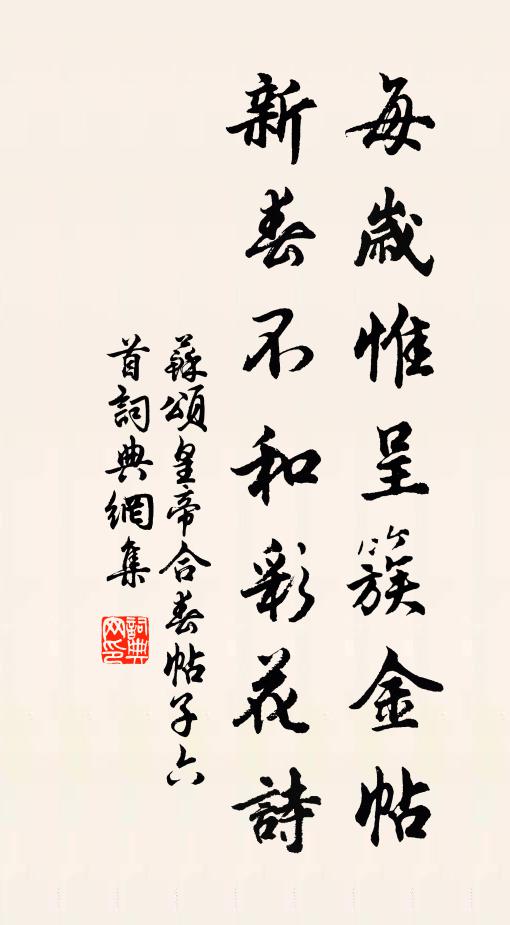 每歲惟呈簇金帖
新春不和彩花詩
蘇頌皇帝合春帖子六
首詞典網集
詞典
网印